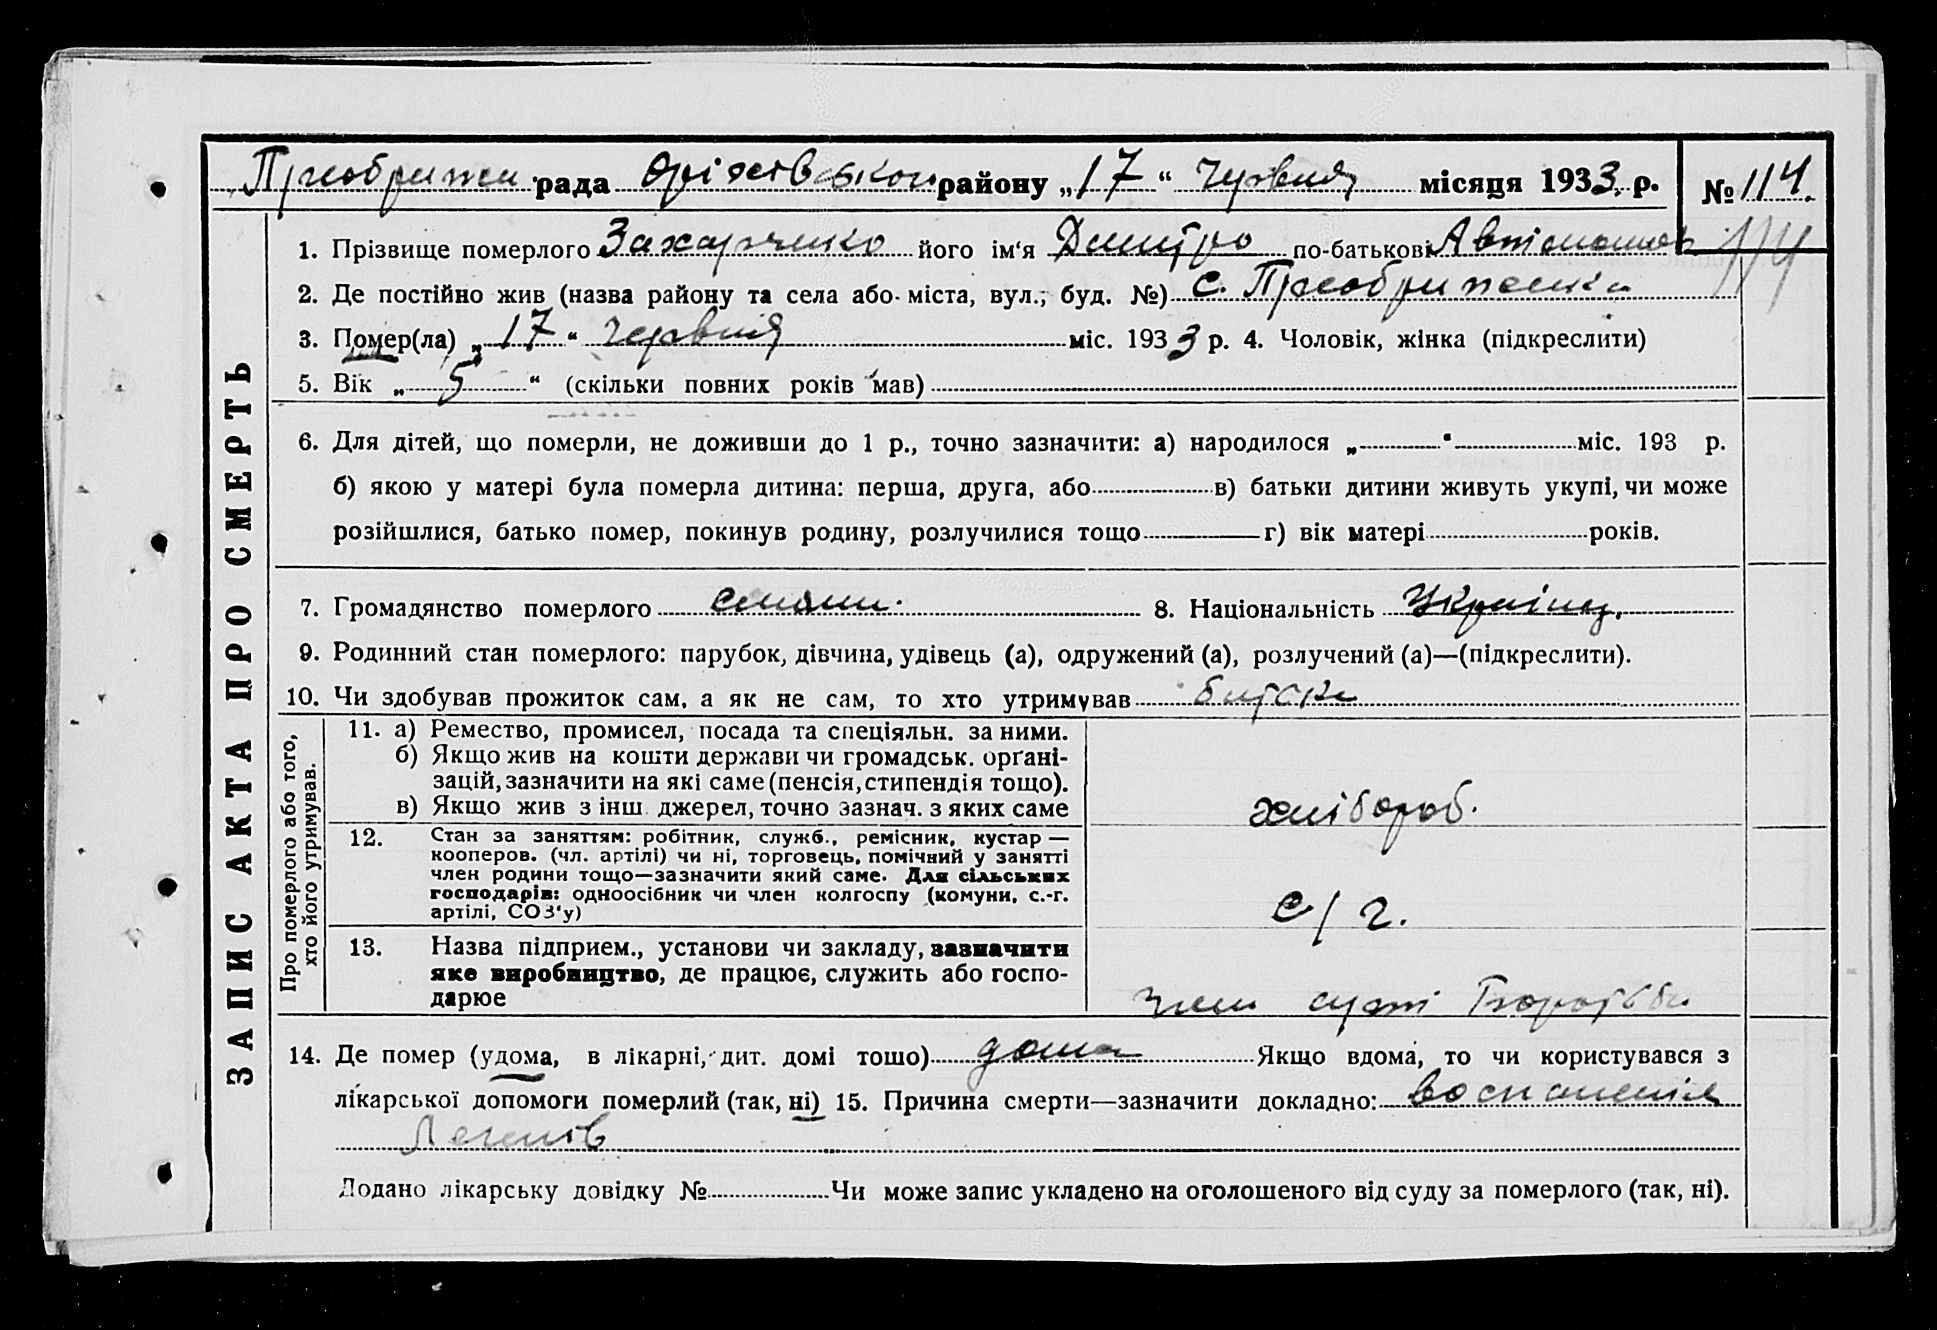 Преображен рада Оріхівського району „17“ Червня місяця 1933 р. № 114.
114
1. Прізвище померлого Захарченко його ім‘я Дмитро по-батькові Автономов
2. Де постійно жив (назва району та села або міста, вул., буд. №) с. Преображенка
3. Помер(ла) „17“ Червня міс. 1933 р. 4. Чоловік, жінка (підкреслити)
5. Вік „5“ (скільки повних років мав)
6. Для дітей, що померли, не доживши до 1 р., точно зазначити: а) народилося „ “ міс. 193 р.
б) якою у матері була померла дитина: перша, друга, або в) батьки дитини живуть укупі, чи може
розійшлися, батько помер, покинув родину, розлучилися тощо г) вік матері років.
7. Громадянство померлого 8. Національність Україн
9. Родинний стан померлого: парубок, дівчина, удівець (а), одружений (а), розлучений (а)—(підкреслити).
10. Чи здобував прожиток сам, а як не сам, то хто утримував батьки
ЗАПИС АКТА ПРО СМЕРТЬ
Про померлого або того,
хто його утримував.
11. а) Ремество, промисел, посада та спеціяльн. за ними.
б) Якщо жив на кошти держави чи громадськ. орґані-
зацій, зазначити на які саме (пенсія, стипендія тощо).
в) Якщо жив з інш. джерел, точно зазнач. з яких саме
хлібороб.
12. Стан за заняттям: робітник, служб., ремісник, кустар —
кооперов. (чл. артілі) чи ні, торговець, помічний у занятті
член родини тощо—зазначити який саме. Для сільських
господарів: одноосібник чи член колгоспу (комуни, с.-г.
артілі, СОЗ‘у)
с/г.
13. Назва підприєм., установи чи закладу, зазначити
яке виробництво, де працює, служить або госпо-
дарює
член арті Боротьба
14. Де помер (удома, в лікарні, дит. домі тошо) дома Якщо вдома, то чи користувався з
лікарської допомоги померлий (так, ні) 15. Причина смерти—зазначити докладно: воспаленія
Легенів
Додано лікарську довідку № Чи може запис укладено на оголошеного від суду за померлого (так, ні).